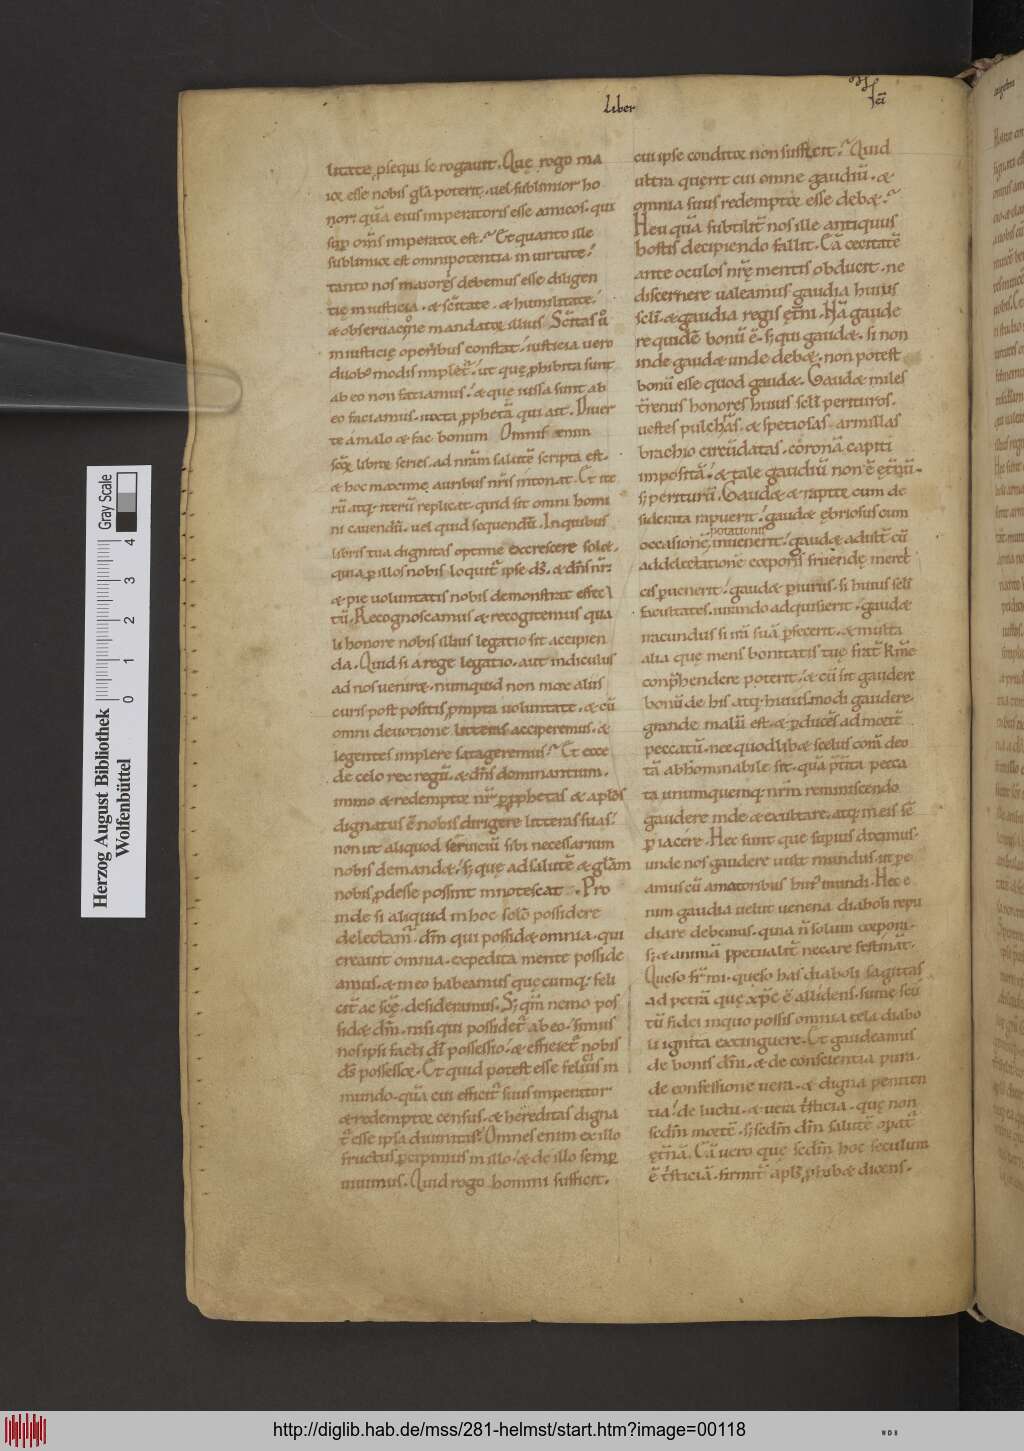 Liber
sci
litate ꝑsequi se rogauit. Quę rogo ma
ior esse nobis gl̄a poterit. uel sublimior ho
nor; quā eius imperatoris esse amicos. qui
sup om̄s imperator est? Et quanto ille
sublimior est omnipotentia in uirtute;
tanto nos maiores debemus esse diligen
tię in iusticia. & sc̄itate. & humilitate;
& obseruatione mandatorum illius. Sc̄itas u͛
in iusticię operibus constat; iusticia uero
duob; modis impletur; ut quę ꝓhibita sunt
ab eo non faciamus; & que iussa sunt ab
eo faciamus. iuxta ꝓphetā qui ait. Diuer
te a malo & fac bonum. Omnis enim
scōꝝ librorum series. ad nr̄am salutē scripta est.
& hoc maxime auribus nr̄is intonat. Et ite
rū atq; iterū replicat. quid sit omni homi
ni cauendū. uel quid sequendū. In quibus
libris tua dignitas optime excrescere solet.
quia ꝑ illos nobis loquit͛ ipse ds̄. & dn̄s nr̄;
& pie uoluntatis nobis demonstrat effec
tū. Recognoscamus & recogitemus qua
li honore nobis illius legatio sit accipien
da. Quid si a rege legatio. aut indiculus
ad nos ueniret. numquid non mox aliis
curis post positis ꝓmpta uoluntate. & cū
omni deuotione litteras acciperemus. &
legentes implere satageremus? Et ecce
de celo rex regū. & dn̄s dominantium.
immo & redemptor nr̄ ꝑ ꝓphetas & aplōs
dignatus ē nobis dirigere litteras suas;
non ut aliquod seruiciū sibi necessarium
nobis demandet; s; quę ad salutē & glām
nobis ꝓdesse possint innotescat. Pro
inde si aliquid in hoc sclō possidere
delectam͛. dm̄ qui possidet omnia. qui
creauit omnia. expedita mente posside
amus. & in eo habeamus quęcumq; feli
cit͛ ac scē. desideramus. S; qm̄ nemo pos
sidet dm̄. nisi qui possidet͛ ab eo; simus
nos ipsi facti dī possessio; & efficiet͛ nobis
ds̄ possessor. Et quid potest esse felicius in
mundo. quā cui efficit͛ suus imperator
& redemptor census. & hereditas digna
t͛ esse ipsa diuinitas? Omnes enim ex illo
fructus ꝑcipimus in illo; & de illo semꝑ
uiuimus. Quid rogo homini sufficit.
cui ipse conditor non sufficit? Quid
ultra querit cui omne gaudiū. &
omnia suus redemptor esse debet?
Heu quā subtilit͛ nos ille antiquus
hostis decipiendo fallit. Cā cecitatē
ante oculos nr̄ę mentis obducit. ne
discernere ualeamus gaudia huius
scl̄i. & gaudia regis ęt̄ni. Nā gaude
re quidē bonū ē. s; qui gaudet. si non
inde gaudet unde debet. non potest
bonū esse quod gaudet. Gaudet miles
t͛renus honores huius scl̄i perituros.
uestes pulchras. & speciosas armillas
brachio circūdatas. coronā capiti
impositā; & tale gaudiū non ē ęt̄nū.
s; periturū. Gaudet & raptor cum de
siderata rapuerit; gaudet ębriosus cum
potationū
occasionē inuenerit; gaudet adult͛ cū
ad delectationē corporis fruendę mere
cis ꝑuenerit; gaudet ꝑiurus. si huius scl̄i
facultates. iurando adquisierit. gaudet
iracundus si irā suā ꝑfecerit. & multa
alia quę mens bonitatis tuę
conp̄hendere poterit; & cū sit gaudere
bonū de his atq; huiusmodi gaudere.
grande malū est. & ꝑducens ad mortē
peccatū. nec quodlibet scelus corā deo
tā abhominabile sit. quā
ta unumquemq; nr̄m reminiscendo
gaudere inde & exultare. atq; in eis sē
ꝑ iacere. Hec sunt que supius diximus.
unde nos gaudere uult mundus. ut pe
amus cū amatoribus hui͛ mundi. Hec e
nim gaudia uelut uenena diaboli repu
diare debemus. quia n̄ solum corpori.
s; & animā ꝑpetualit͛ necare festinat.
Queso fr̄ mi. queso has diaboli sagittas
ad petrā que xp̄c ē allidens. sume scu
tū fidei in quo possis omnia tela diabo
li ignita extinguere. Et gaudeamus
de bonis dn̄i. & de conscientia pura.
de confessione uera. & digna peniten
tia; de luctu. & uera t͛sticia. quę non
scdm̄ mortē. s; scdm̄ dm̄ salutē opat͛
ęt̄nā. Cā uero quę scdm̄ hoc seculum
ē t͛sticiā. firmit͛ apls̄ ꝓhibet dicens.
Herzog August Bibliothek
Wolfenbüttel
Gray Scale
0 1 2 3 4
http://diglib.hab.de/mss/281-helmst/start.htm?image=00118